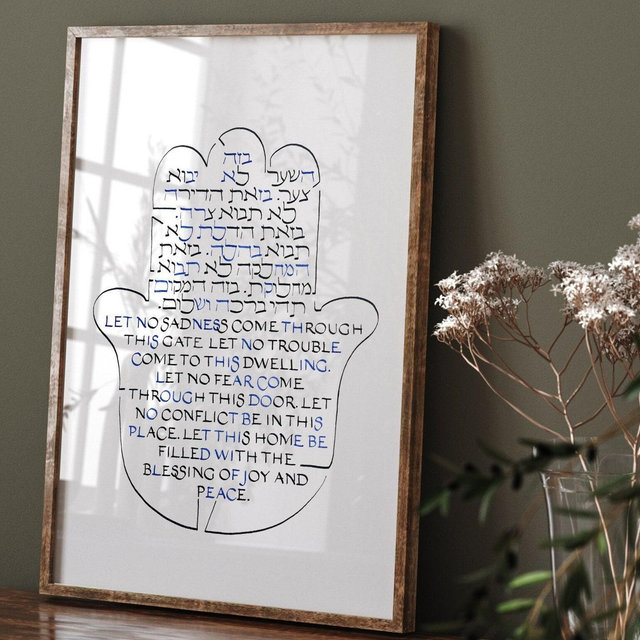 בזה
השער לא יבוא
צער. בזאת הדירה
לא תבוא צרה.
בזאת הדלת לא
תבוא בהלה. בזאת
המחלקה לא תבוא
מחלוקת. בזה המקום
תהי ברכה ושלום.
LET NO SADNESS COME THROUGH
THIS GATE. LET NO TROUBLE
COME TO THIS DWELLING.
LET NO FEAR COME
THROUGH THIS DOOR. LET
NO CONFLICT BE IN THIS
PLACE. LET THIS HOME BE
FILLED WITH THE
BLESSING OF JOY AND
PEACE.